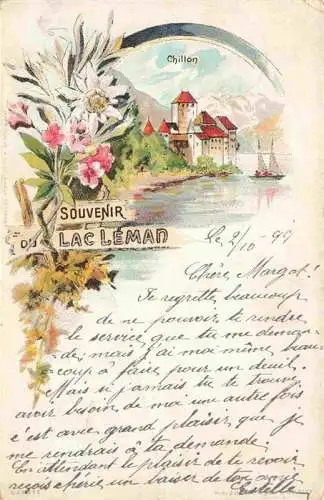 Chillon
SOUVENIR
DU LAC LÉMAN
le 2/10 - 97
Chère Margot!
Je regrette beaucoup
de ne pouvoir te rendre
le service que tu me deman-
de, mais j'ai moi même beau-
coup à faire pour un deuil.
Mais si jamais tu te trouve
avoir besoin de moi une autre fois
c'est avec grand plaisir que je
me rendrais à ta demande.
En attendant le plaisir de te revoir
reçois chère un baiser de ton amie
Estelle